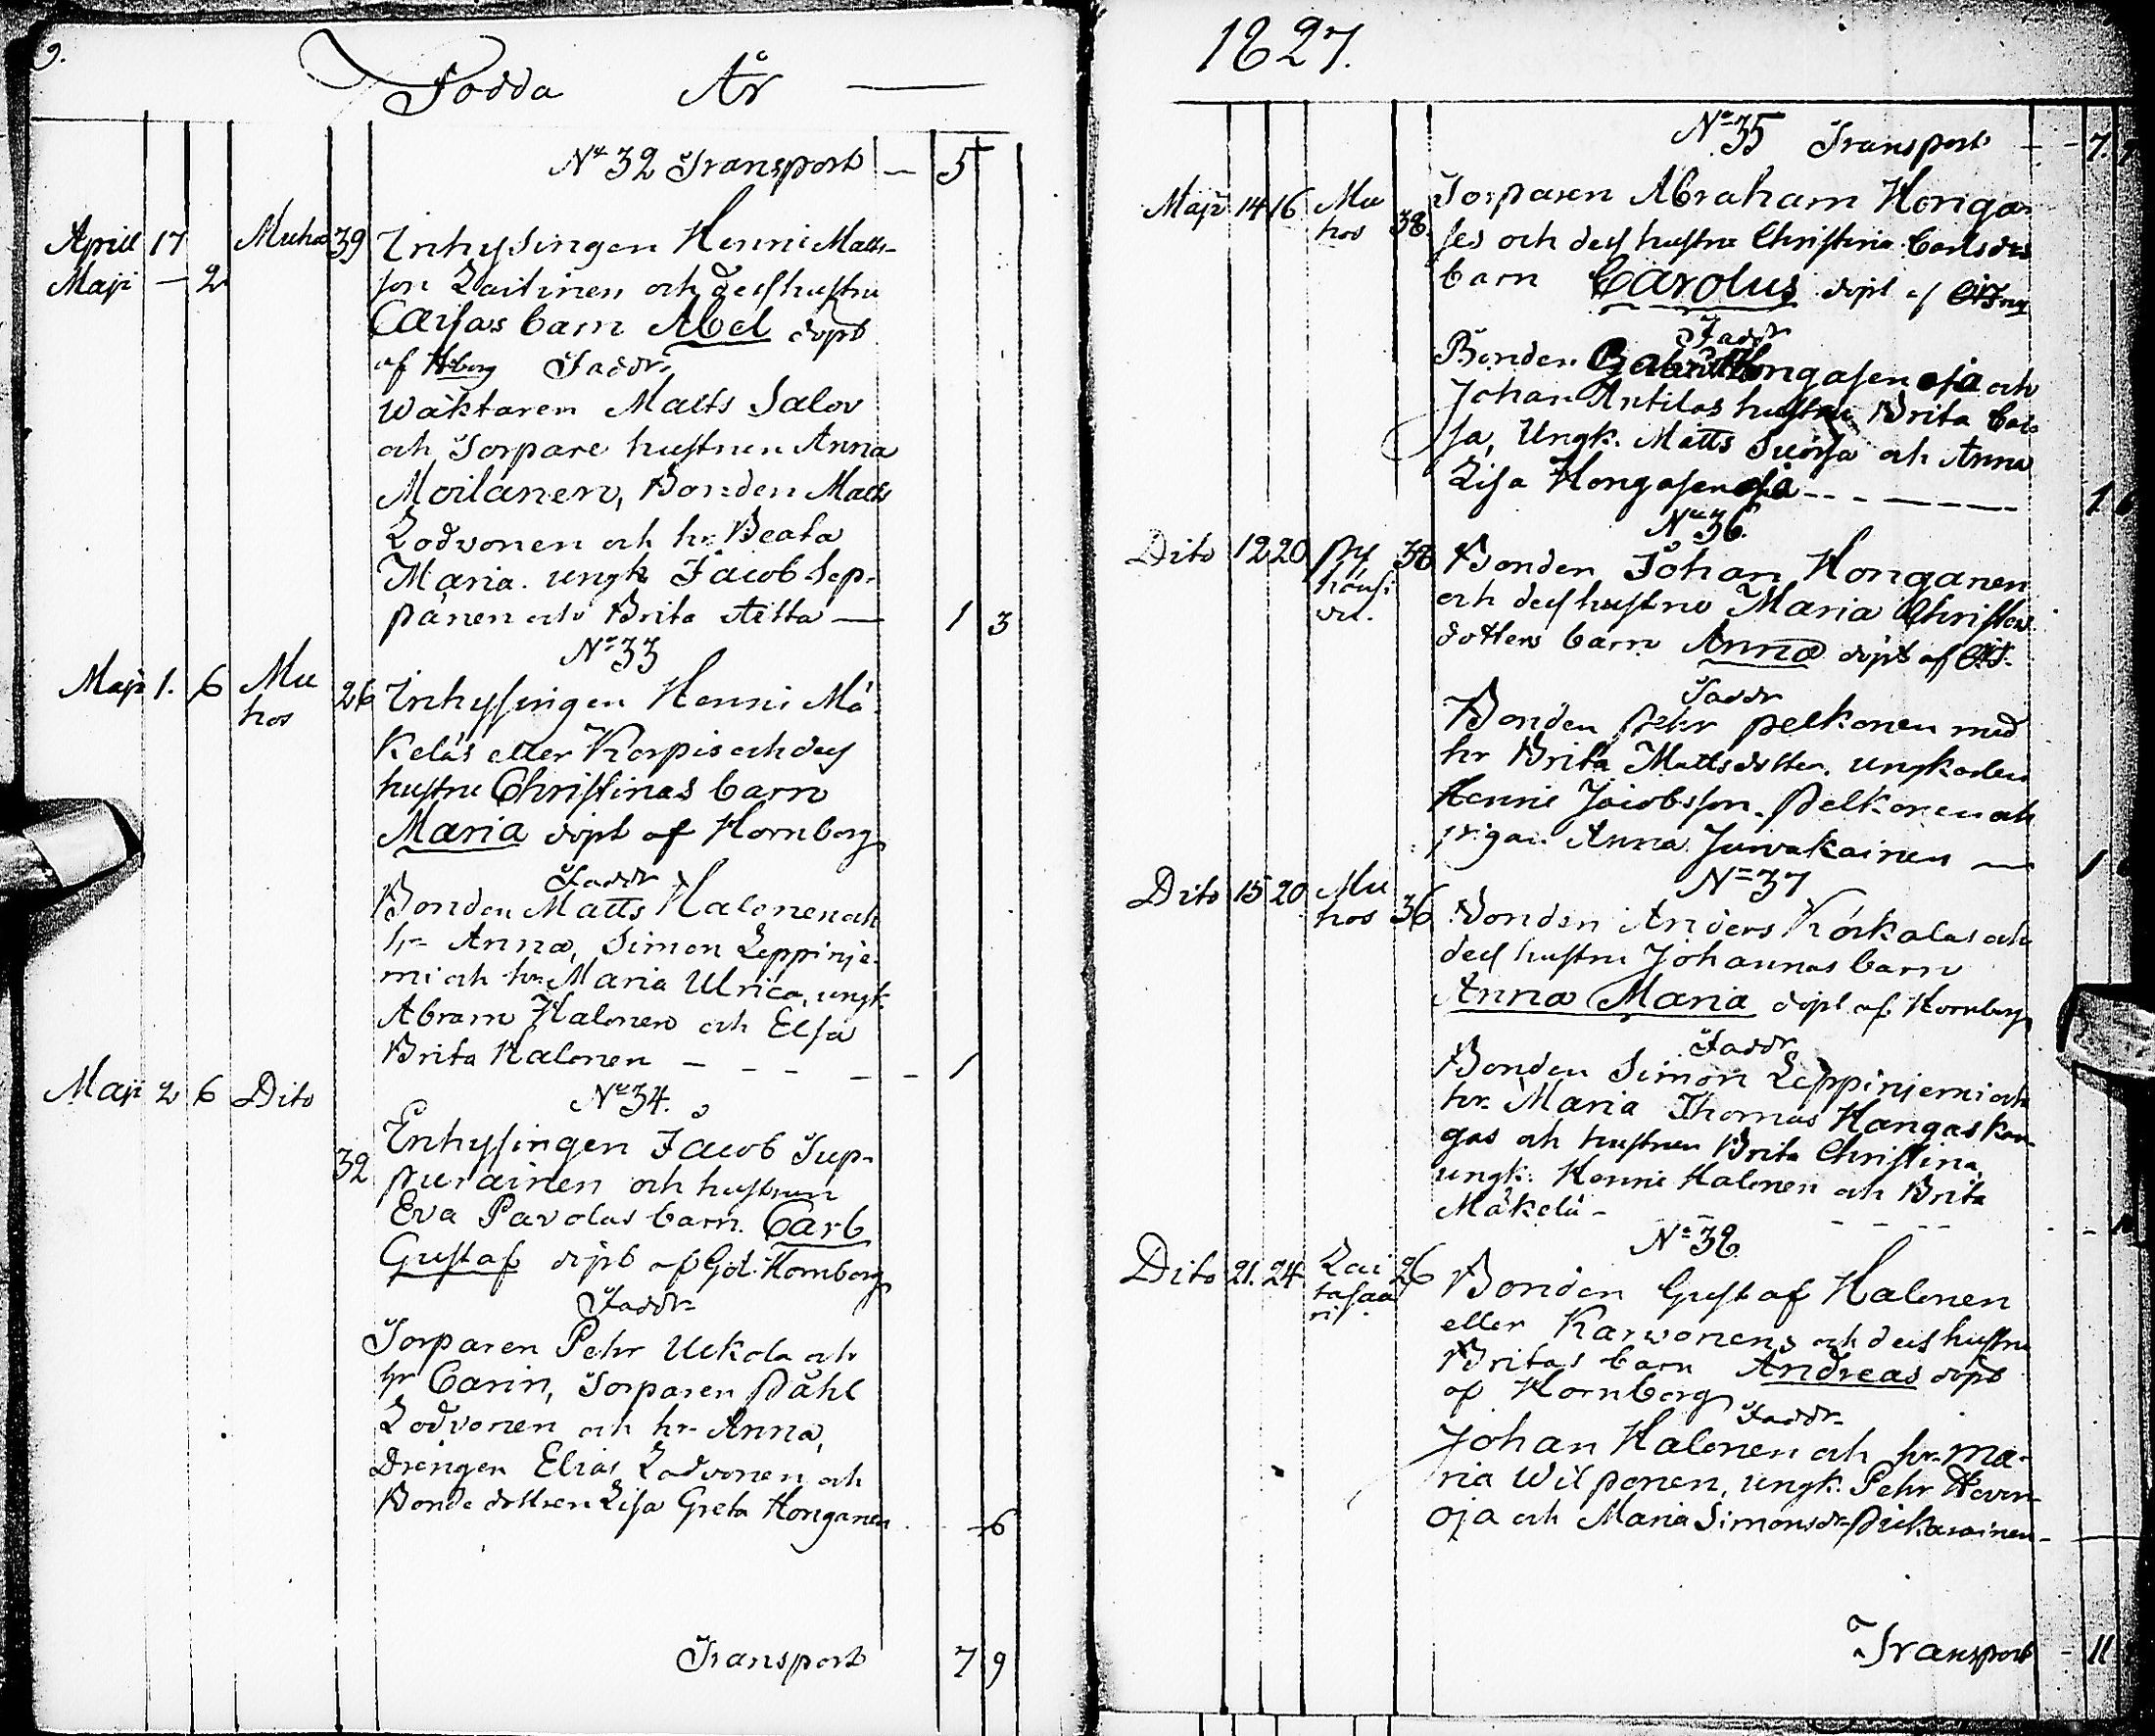 9.
Födda År —
Nº 32 Transport — 5
Aprill 17 Muhos 39 Inhysingen Henric Matts-
Maji — 2 son Laitinen och dess hustru
Caisas barn Abel döpt
af Hborg Faddr.
Wäktaren Matts Salov
och Torpare hustrun Anna
Moilanen, Bonden Matts
Lodvonen och hr. Beata
Maria. ungk Jacob Sep-
pänen och Brita Aitta — 1 3
Nº 33
Maji 1. 6 Mu 26 Inhysingen Henric Mä-
hos
keläs eller Korpis och dess
hustru Christinas barn
Maria döpt af Hornborg
Faddr
Bonden Matts Halonen och
hr Anna, Simon Leppinje-
mi och hr. Maria Ulrica, ungk.
Abram Halonen och Elsa
Brita Halonen - - - - - 1
Maji 2 6 Dito Nº 34.
32 Inhysingen Jacob Tup-
purainen och hustrun
Eva Pavolas barn. Carl
Gustaf döpt af Gd. Hornborg
Faddr
Torparen Pehr Uckola och
hr Carin, Torparen Påhl
Lodvonen och hr. Anna,
Drengen Elias Lodvonen och
Bonde dottren Lisa Greta Honganen - 6
Transport 7 9
1827.
Nº 35 Transport - - 7.
Maji 14 16 Mu 38. Torparen Abraham Honga-
hos
ses och dess hustru Christina Carlsdrs
barn Carolus döpt af
Faddr
Bonden Hongasenoja och
Johan Antilas hustru Brita Cai-
sa, Ungk. Matts Suorsa och Anna
Lisa Hongasenoja - - - - 1
Nº 36.
Dito 12 20 Py 38 Bonden Johan Honganen
och dess hustru Maria Christers
dotters barn Anna döpt af
Faddr
Bonden Pehr Pelkonen med
hr Brita Mattsdotter. ungkarlen
Henric Jacobsson Pelkonen och
pigan Anna Juvakainen — 1
Nº 37
Dito 15 20 Mu 36 Bonden Anders Körkälas och
hos
dess hustru Johannas barn
Anna Maria döpt af Hornborg
Faddr
Bonden Simon Leppinjemi och
hr. Maria Thomas Hangaskan-
gas och hustrun Brita Christina,
ungk. Henric Halonen och Brita
Mäkelä - - - - -
Nº 38.
Dito 21. 24 Lai 26 Bonden Gustaf Halonen
tasaa
ri.
eller Karvonens och dess hustru
Britas barn Andreas döpt
af Hornborg
Faddr.
Johan Halonen och hr. Ma-
ria Wilponen, ungk. Pehr
oja och Maria Simonsdr Pickarainen -
Transport - 11